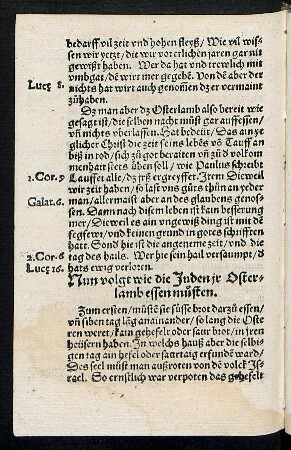 bedarff vil zeit vnd hohen fleyß/ Wie vil wis-
sen wir yetzt/ die wir vor etlichen jaren gar nit
gewißt haben. Wer da hat vnd trewlich mit
vmbgat/ dē wirt mer gegebē. Von dē aber der
Lucę 8. nichts hat wirt auch genōmen dz er vermaint
zůhaben.
Dz man aber dz Osterlamb also bereit wie
gesagt ist/ die selben nacht můst gar auffessen/
vñ nichts vberlassen. Hat bedeüt/ Das ain yeg
licher Christ die zeit seins lebēs vō Tauff an
biß in rod/ sich zů got beraiten vñ zů d volkom
menhait stets üben soll/ wie Paulus schreibt
1. Cor. 9 Lauffet alle/ dz jrß ergreyffet. Item Dieweil
wir zeit haben/ so last vns gůts thůn an yeder
Galat. 6. man/ allermaist aber an des glaubens genos-
sen. Dann nach disem leben ist kain besserung
mer/ Dieweil es ain vngewiß ding ist mit dē
segfewr/ vnd keinen grund in gotes schrifften
hatt. Sond hie ist die angeneme zeit/ vnd die
2. Cor. 6 tag des hails. Wer hie sein hail versaumpt/ d
Lucę 16. hats ewig verloren.
Nun volgt wie die Juden jr Oster-
lamb essen můsten.
Zum ersten/ můstē sie süsse brot darzů essen/
vñ siben tag lāg ainander/ so lang die Oste
ren weret/ kain gehefelt oder saur brot/ in jren
heüsern haben. In welchs hauß aber die selbi-
gen tag ain hefel oder saurtaig erfundē ward/
Des seel můst man außroten von dē volck Is-
rael. So ernstlich war verpoten das gehefelt